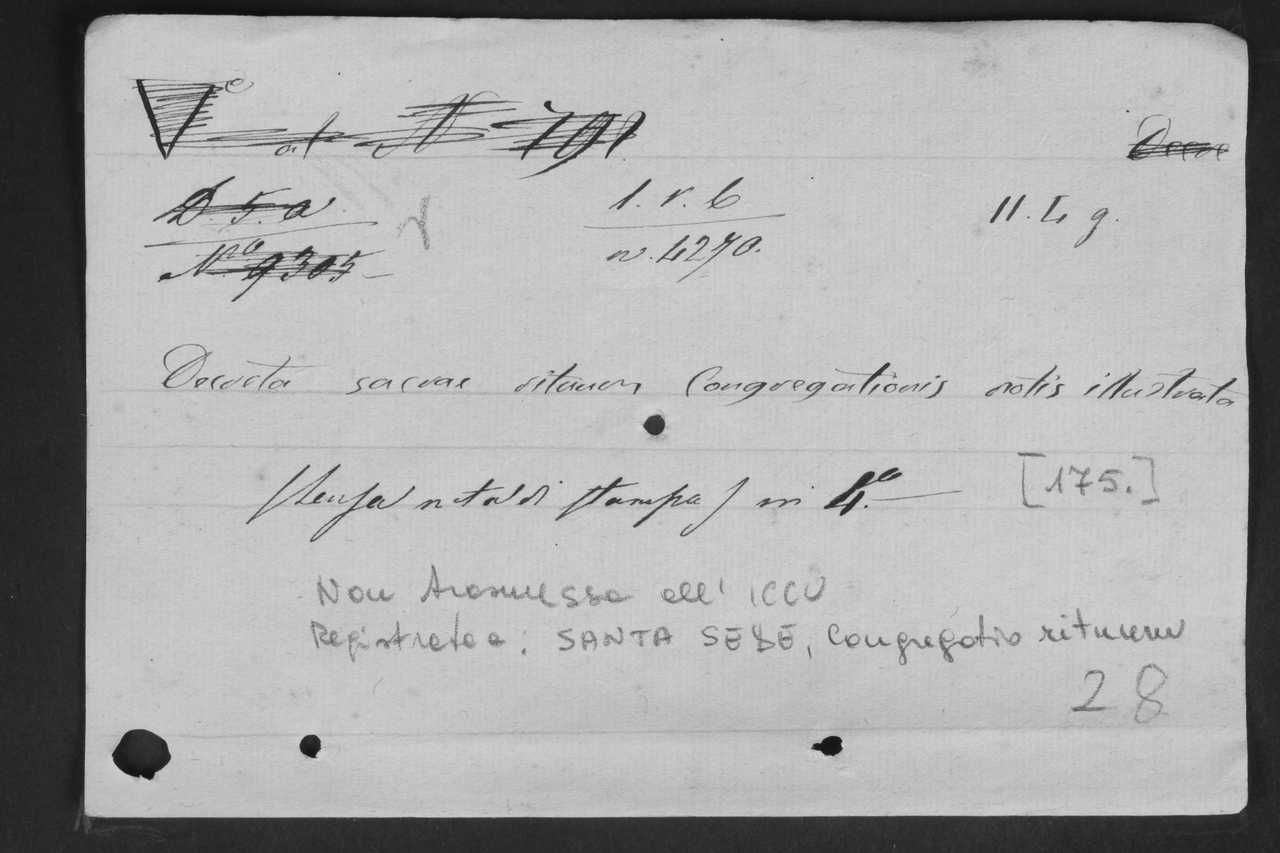 D. 5. a
1. r. b
11. L g.
N.º 9305
n. 4270.
Decreta sacrae rituum Congregationis notis illustrata
(senza nota di stampa) in 4.º
[175.]
Non trasmessa all' ICCU
Registrata a: SANTA SEDE, Congregatio rituum
28